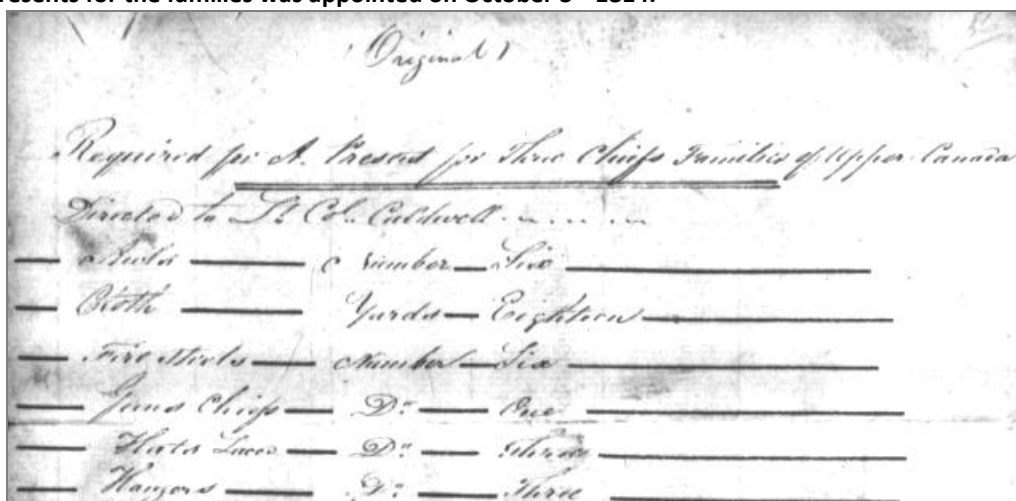 resents for the families was appointed on October
Original
Required for A Present for Three Chiefs Families of Upper Canada
Directed to Lt Col. Caldwell
Number Six
Cloth Yards Eighteen
Fire Steels Number Six
Guns Chiefs Do One
Hats Laced Do Three
Hangers Do Three